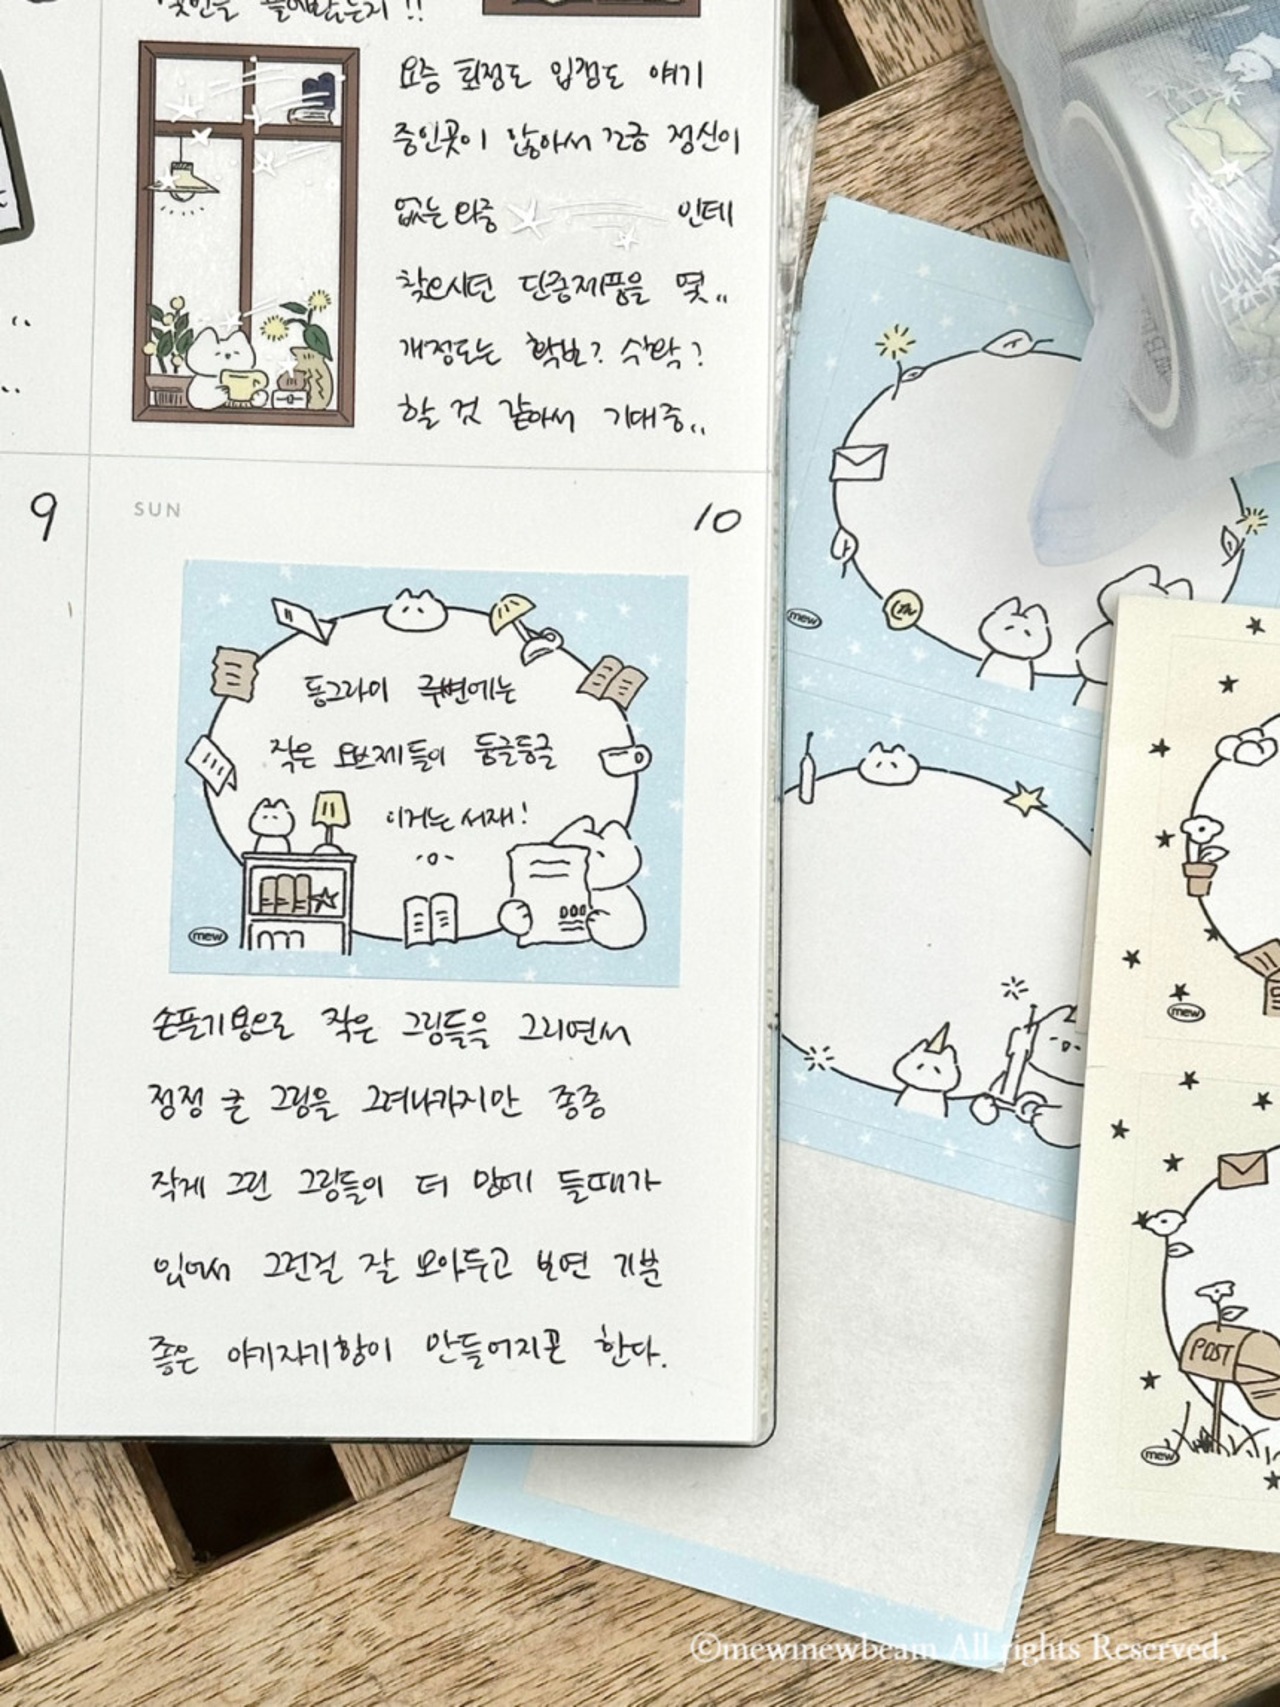 몇인을 늘려봤는지 !!
요즘 회정도 입점도 얘기
중인곳이 많아서 조금 정신이
없는 와중 인데
찾으시던 단종제품을 몇..
개정도는 확보? 수확?
할 것 같아서 기대중..
9
SUN
10
동그라미 주변에는
작은 오브제들이 둥글둥글
이거는 서재!
mew
손풀기용으로 작은 그림들을 그리면서
점점 큰 그림을 그려나가지만 종종
작게 그린 그림들이 더 맘에 들때가
있어서 그런걸 잘 모아두고 보면 기분
좋은 아기자기함이 만들어지곤 한다.
mew
mew
POST
mew
©mewinewbeam All rights Reserved.